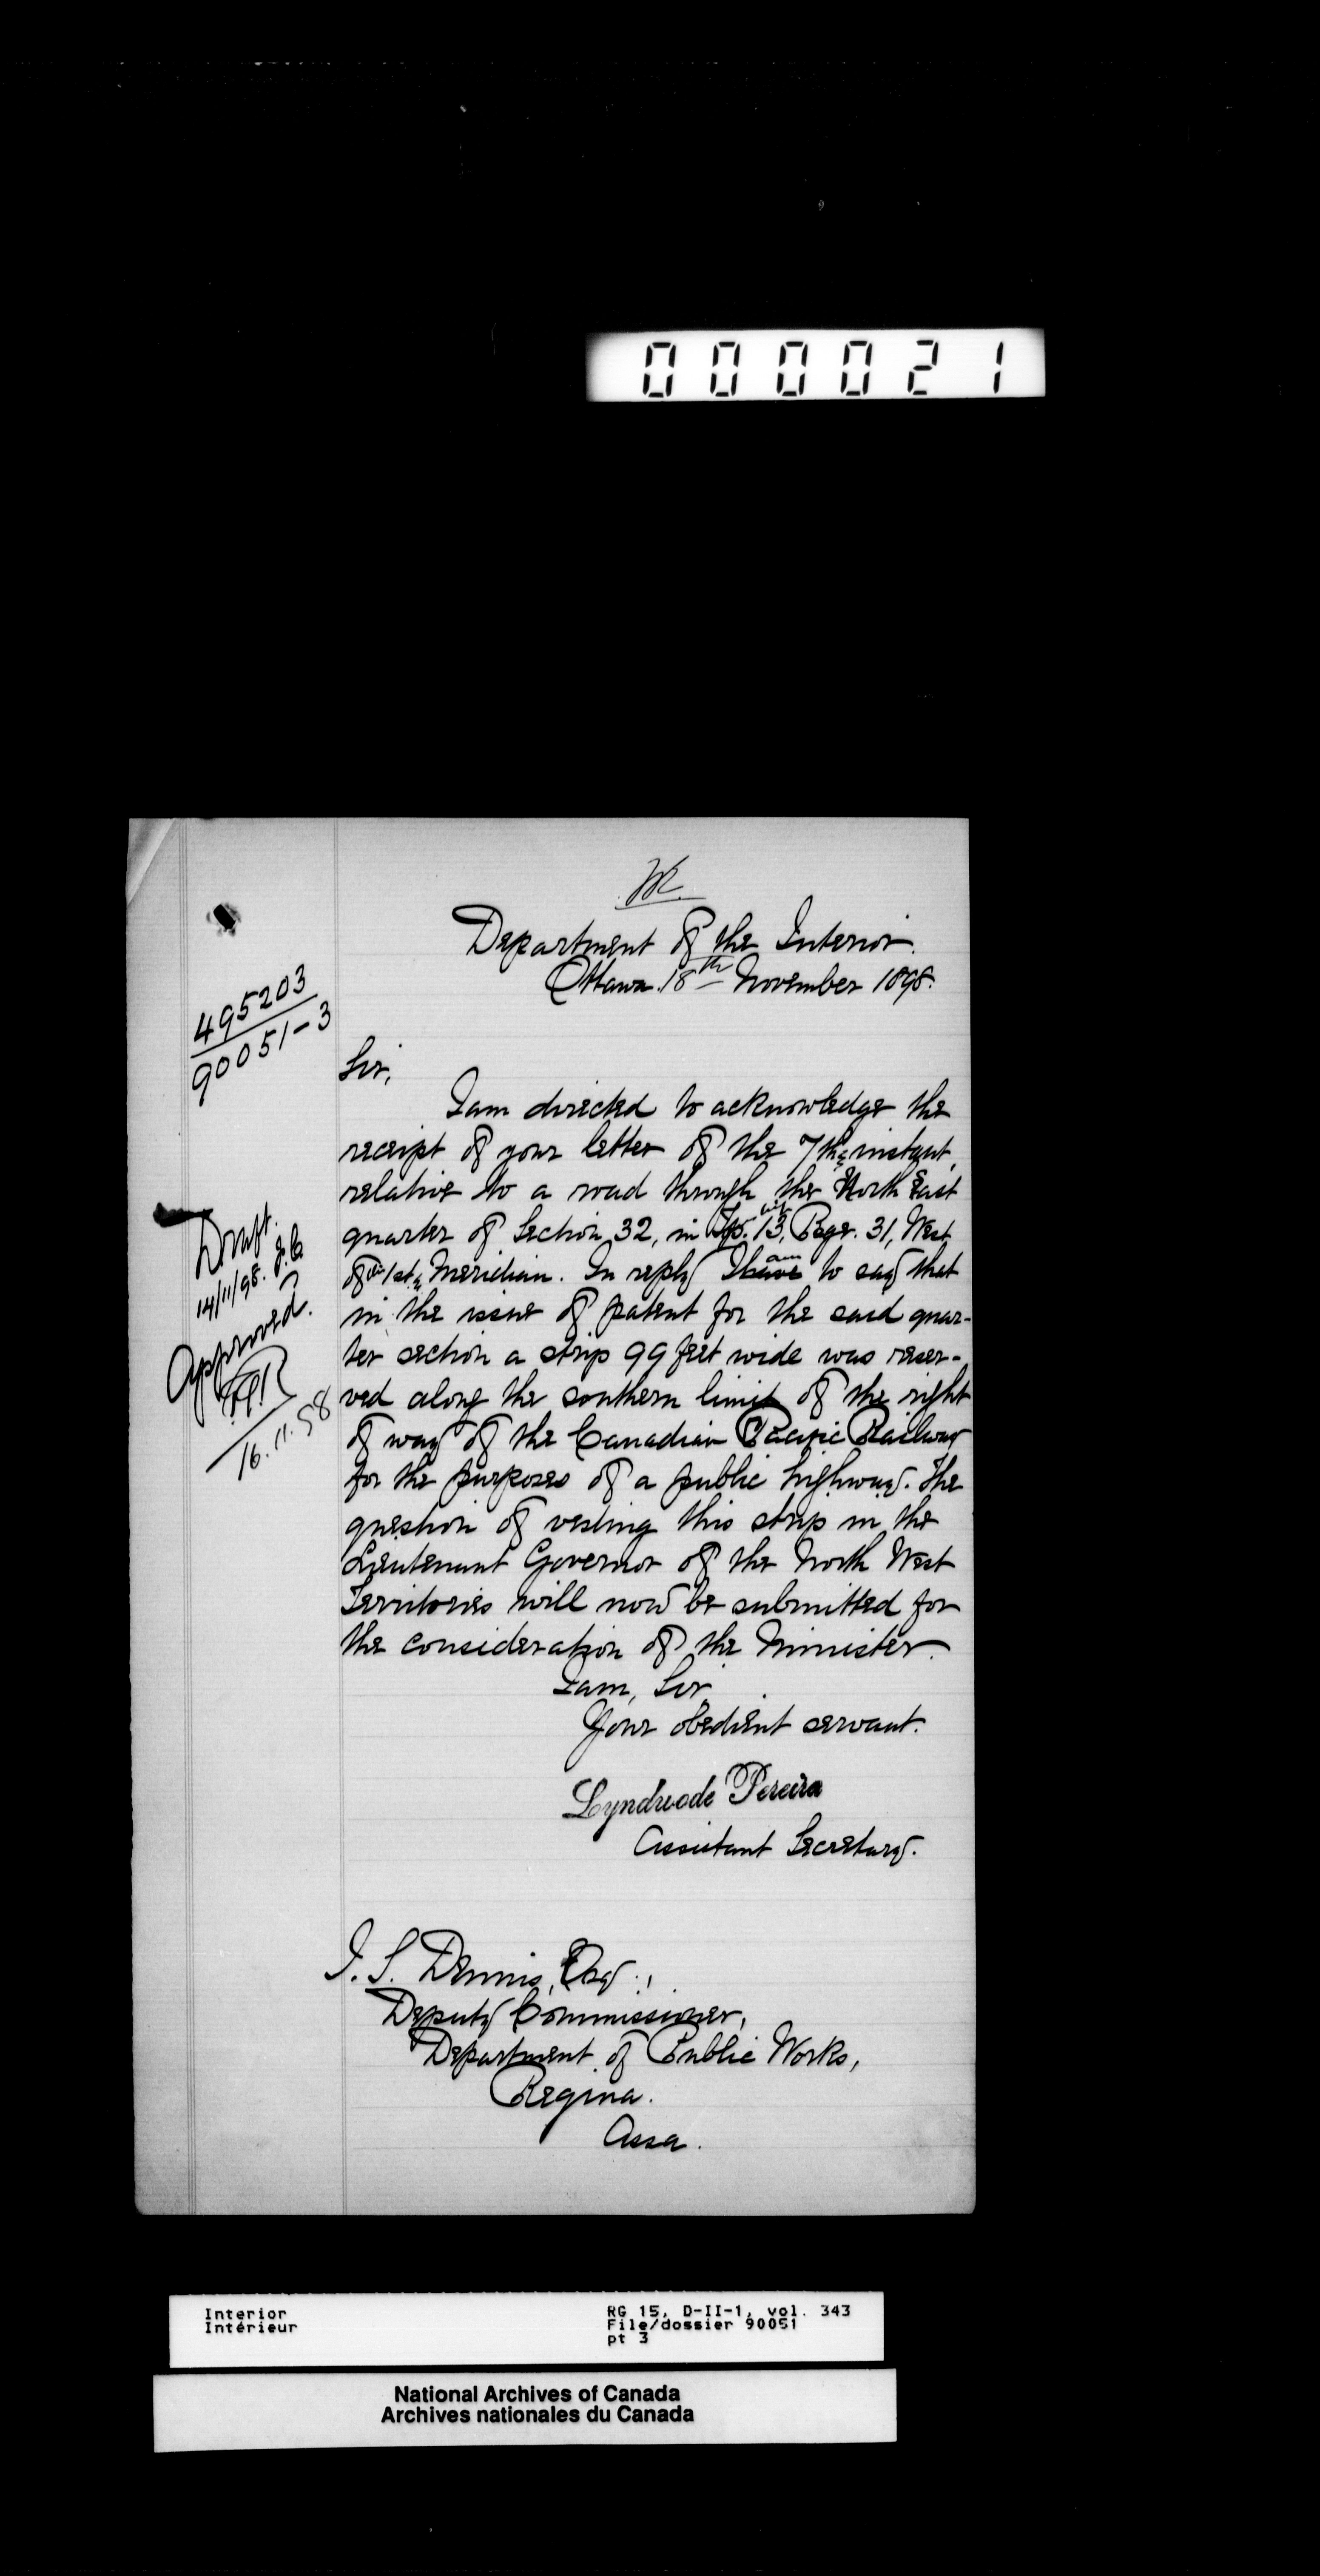 000021
Department of the Interior.
Ottawa 18th November 1898.
495203
90051-3
Sir,
I am directed to acknowledge the
receipt of your letter of the 7th instant,
relative to a road through the North East
quarter of Section 32, in Tp. 13, Rge. 31, West
of 1st Meridian. In reply I have am to say that
in the issue of patent for the said quar-
ter section a strip 99 feet wide was reser-
ved along the southern limit of the right
of way of the Canadian Pacific Railway
for the purposes of a public highway. The
question of vesting this strip in the
Lieutenant Governor of the North West
Territories will now be submitted for
the consideration of the Minister.
I am, Sir,
Your obedient servant.
Lyndwode Pereira
Assistant Secretary.
Draft.
14/11/98.
Approved.
16.11.98
J. S. Dennis, Esq.,
Deputy Commissioner,
Department of Public Works,
Regina.
Assa.
Interior
Intérieur
RG 15, D-II-1, vol. 343
File/dossier 90051
pt 3
National Archives of Canada
Archives nationales du Canada